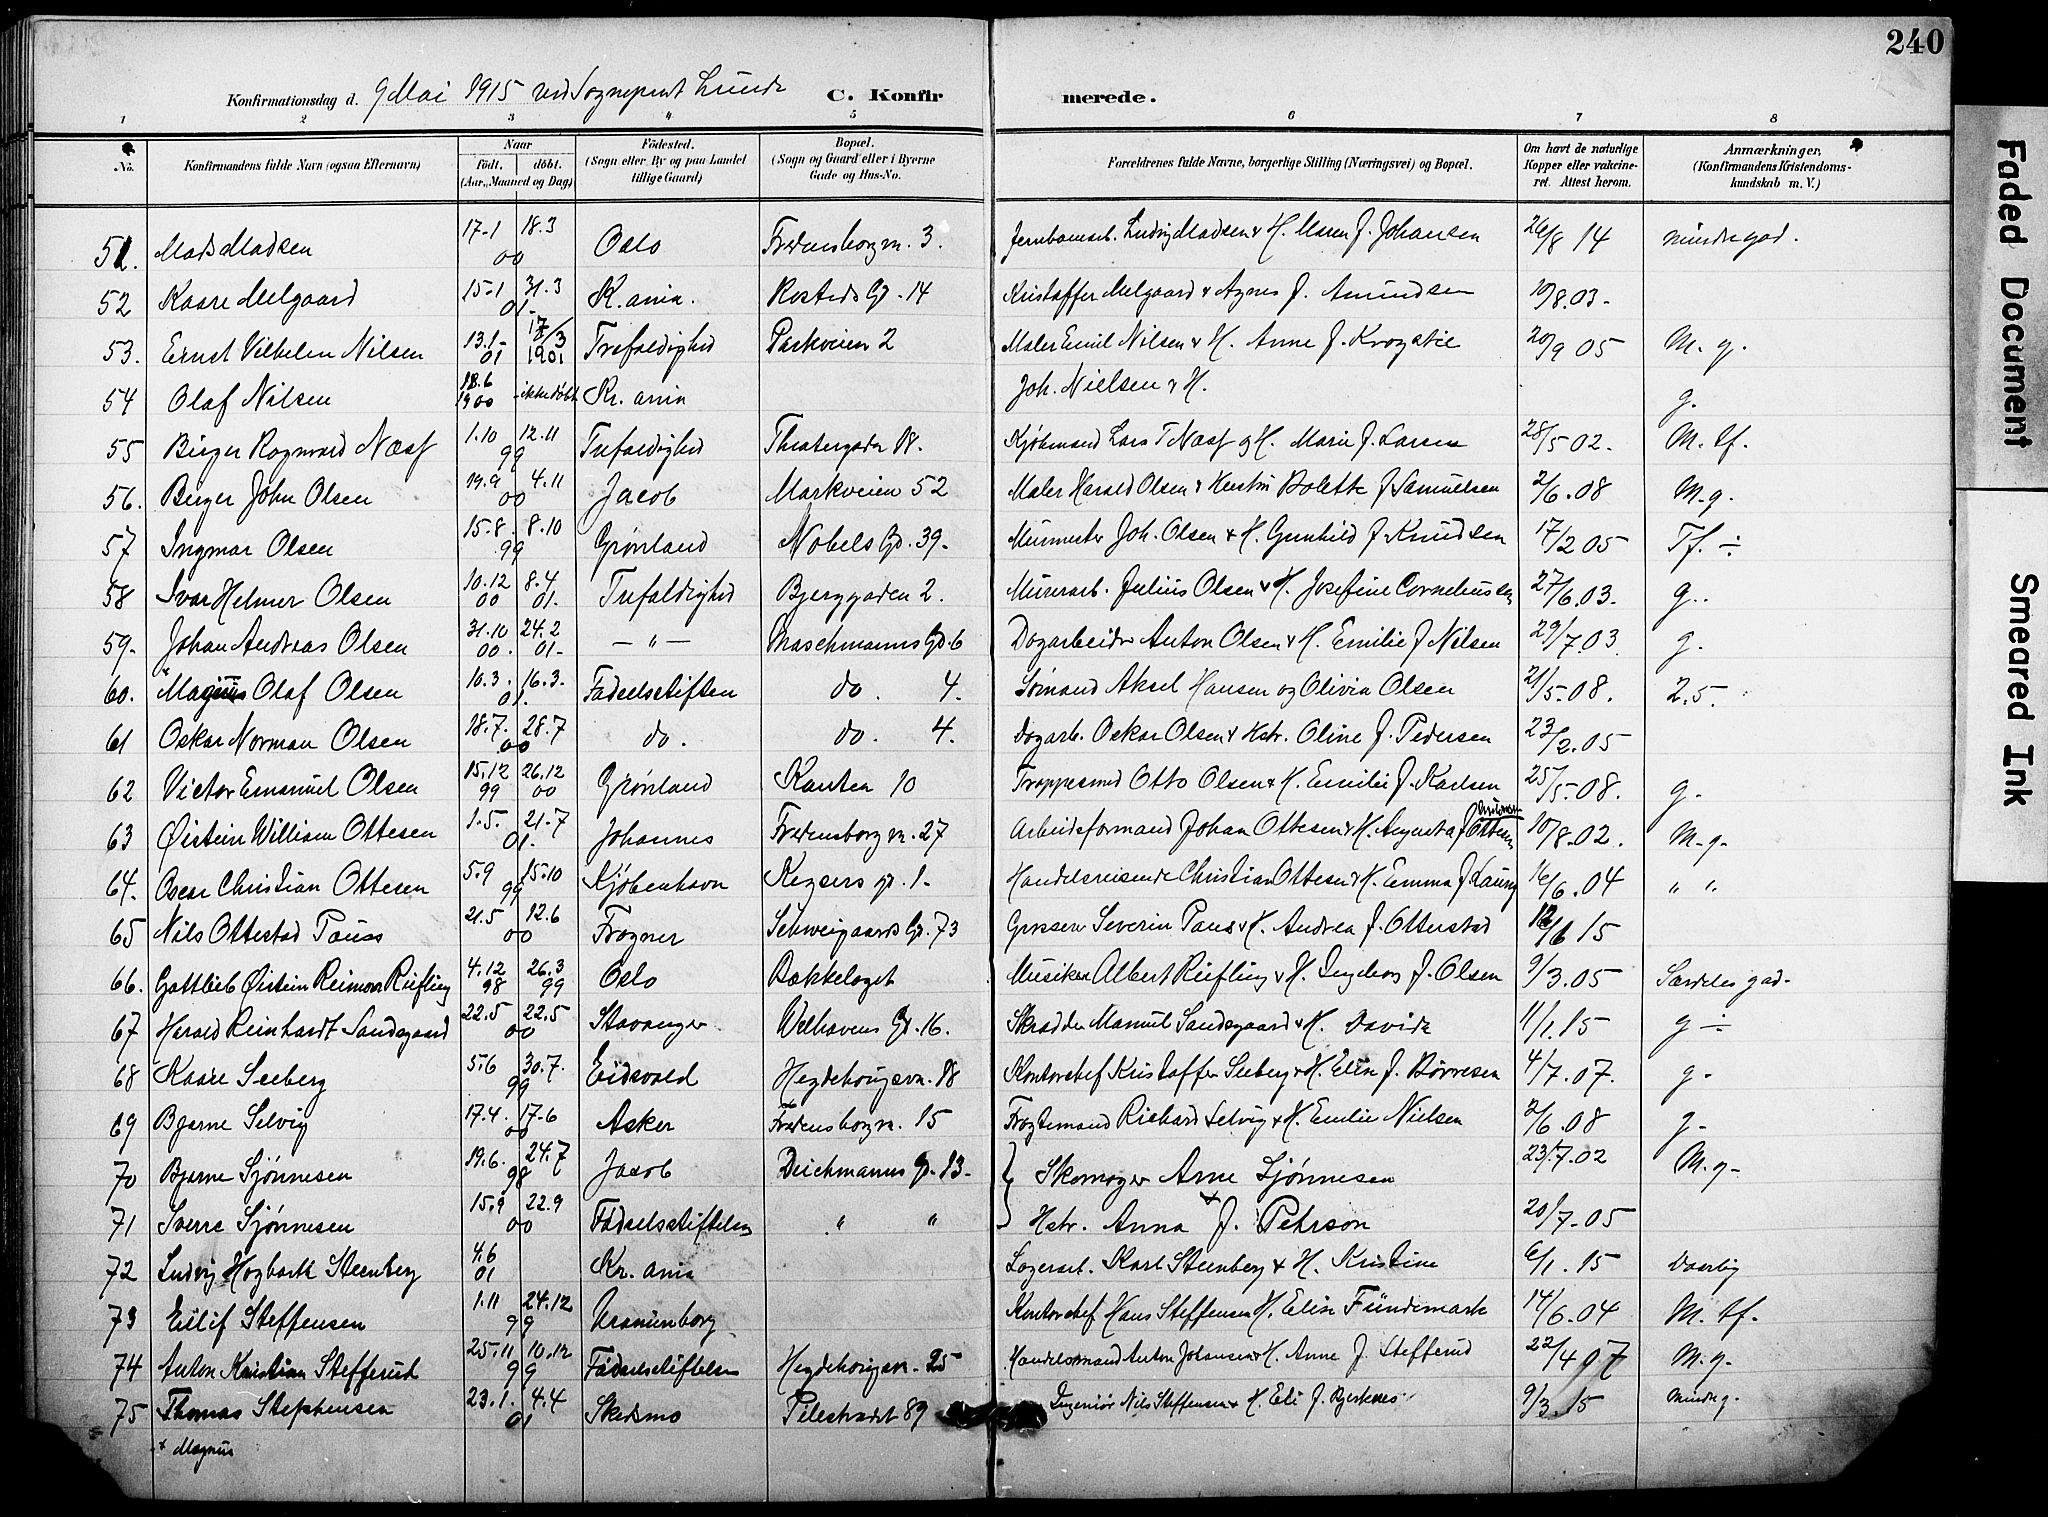 240
Konfirmationsdag d. 9 Mai 1915 ved Sogneprest Lunde C. Konfirmerede.
1 2 3 4 5 6 7 8
No. Konfirmandens fulde Navn (ogsaa Efternavn) Naar født. døbt. (Aar, Maaned og Dag) Fødested. (Sogn eller By og paa Landet tillige Gaard) Bopæl. (Sogn og Gaard eller i Byerne Gade og Hus-No. Forældrenes fulde Navne, borgerlige Stilling (Næringsvei) og Bopæl. Om havt de naturlige Kopper eller vakcineret. Attest herom. Anmærkninger, (Konfirmandens Kristendomskundskab m. V.)
51. Mads Madsen 17-1 18.3 00 Oslo Fredensborgvn. 3. Jernbanearb. Ludvig Madsen & H. Maren f. Johansen 26/8 14 mindregod.
52 Kaare Melgaard 15-1 31.3 01. K.ania. Rosteds Gd. 14 Kristoffer Melgaard & Agnes f. Amundsen 10/8.03-
53. Ernst Vilhelm Nilsen 13.1- 01 17/3 1901 Trefoldighed Parkveien 2 Maler Emil Nilsen & H. Anne f. Krogstie 20/9 05 M. g.
54 Olaf Nilsen 18.6 1900 -ikke døbt Kr. ania Joh. Nielsen & H. g.
55 Birger Ragnvald Næss 1.10 12.11 99 Trefoldighed Theatergaden 18. Kjøbmand Lars T Næss og H. Marie f. Larsen 28/5 02. M. tf.
56. Birger John Olsen 19.9 4.11 00 Jacob Markveien 52 Maler Harald Olsen & Hustru Bolette f Samuelsen 2/6.08 M.g.
57 Ingmar Olsen 15.8. 8.10 99 Grønland Nobels Gd. 39- Murmester Joh. Olsen & H. Gunhild f. Knudsen 17/2 05 Tf. ÷
58 Ivar Helmer Olsen 10.12 00 8.4 01. Trefoldighed Bjerggaden 2. Murerarb. Julius Olsen & H. Josefine Corneliussen 27/6.03. g..
59- Johan Andreas Olsen 31.10 00. 24.2 01- — " — Maschmanns Gd. 6 Dagarbeider Anton Olsen & H. Emilie f Nilsen 29/7.03 g.
60. Magnus Olaf Olsen 10.3. 16.3. 01. Fødselsstiften do. 4. Sømand Aksel Hansen og Olivia Olsen 21/5.08. 2.5.
61 Oskar Norman Olsen 18.7. 28.7 00 do. do. 4. Dagarb. Oskar Olsen & Hstr. Oline f. Pedersen 23/2.05
62 Victor Emanuel Olsen 15.12 99 26.12 00 Grønland Kanten 10 Trappesmed Otto Olsen & H. Emilie f. Karlsen 25/5.08. g.
63 Øistein William Ottesen 1.5. 21.7 01. Johannes Fredensborgvn. 27 Arbeidsformand Johan Ottesen & H. Augusta f Ottesen 10/8.02. M.g.
64. Oscar Christian Ottesen 5.9 15.10 99 Kjøbenhavn Keysers gd. 1- Handelsreisende Christian Ottesen & H. Emma f. 16/6.04 " "
65 Nils Ottestad Paus 21.5 12.6 00 Frogner Schweigaards Gd. 73 Grosserer Severin Paus & H. Andrea f. Otterstad 12/6 15
66. Gottlieb Øistein Reimar Riefling 4.12 98 26.3 99 Oslo Bækkelaget Musiker Albert Riefling & H. Ingeborg f. Olsen 9/3.05 Særdeles god-
67 Harald Reinhardt Sandsgaard 22.5 22.5 00 Stavanger Welhavens Gd. 16. Skrædder Manuel Sandsgaard & H. Davida 11/1.15 g ÷
68 Kaare Seeberg 5.6 30.7. 99 Eidsvold Hegdehougsvn. 18 Kontorchef Kristoffer Seeberg & H. Elin f. Børresen 4/7.07. g-
69 Bjarne Selvig 17.4. 17-6 00 Asker Fredensborgvn. 15 Fragtemand Richard Selvig & H. Emilie Nielsen 2/6.08 g-
70 Bjarne Sjønnesen 19.6. 24.7 98 Jacob Deichmanns Gd. 13- Skomager Arne Sjønnesen 23/7.02 M.g-
71 Sverre Sjønnesen 15.9 22.9 00 Fødselsstiftelsen " " & Hstr. Anna f. Pehrson 20/7-05
72 Ludvig Hogbarth Steenberg 4.6 01 Kr. ania Lagerarb. Karl Steenberg & H. Kristine 6/1.15 Daarlig
73 Eilif Steffensen 1.11 24.12 99 Uranienborg Kontorchef Hans Steffensen H. Elise Fündemark 14/6.04 M. tf.
74 Anton Kristian Stefferud 25.11 10.12 99 Fødselsstiftelsen Hegdehougsvn. 25 Handelsmand Anton Johansen & H. Anne f. Stefferud 22/4 07 M.g.
75 Thomas Stephensen 23.1. 4.4 01 Skedsmo Pilestrædet 89 Ingeniør Nils Steffensen & H. Eli f. Bjerknes 9/3.15 mindre g.
+ Magnus
Faded Document
Smeared Ink